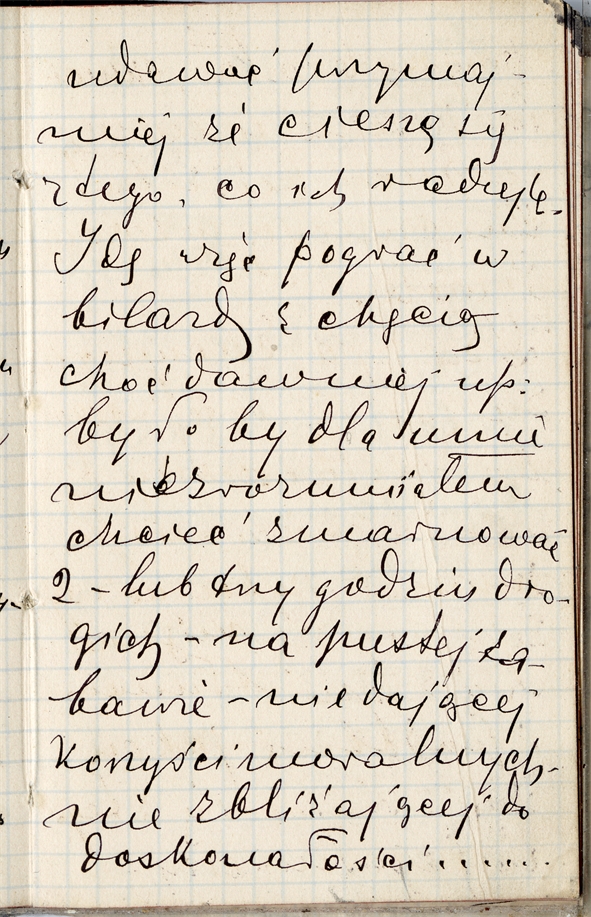 udawać przynaj-
mniej że cieszą się
z tego, co ich raduje.
Idę więc pograć w
bilard z chęcią
choć dawniej np:
było by dla mnie
niezrozumiałem
chcieć zmarnować
2 - lub trzy godzin dro-
gich - na pustej za-
bawie - nie dającej
korzyści moralnych -
nie zbliżającej do
doskonałości......